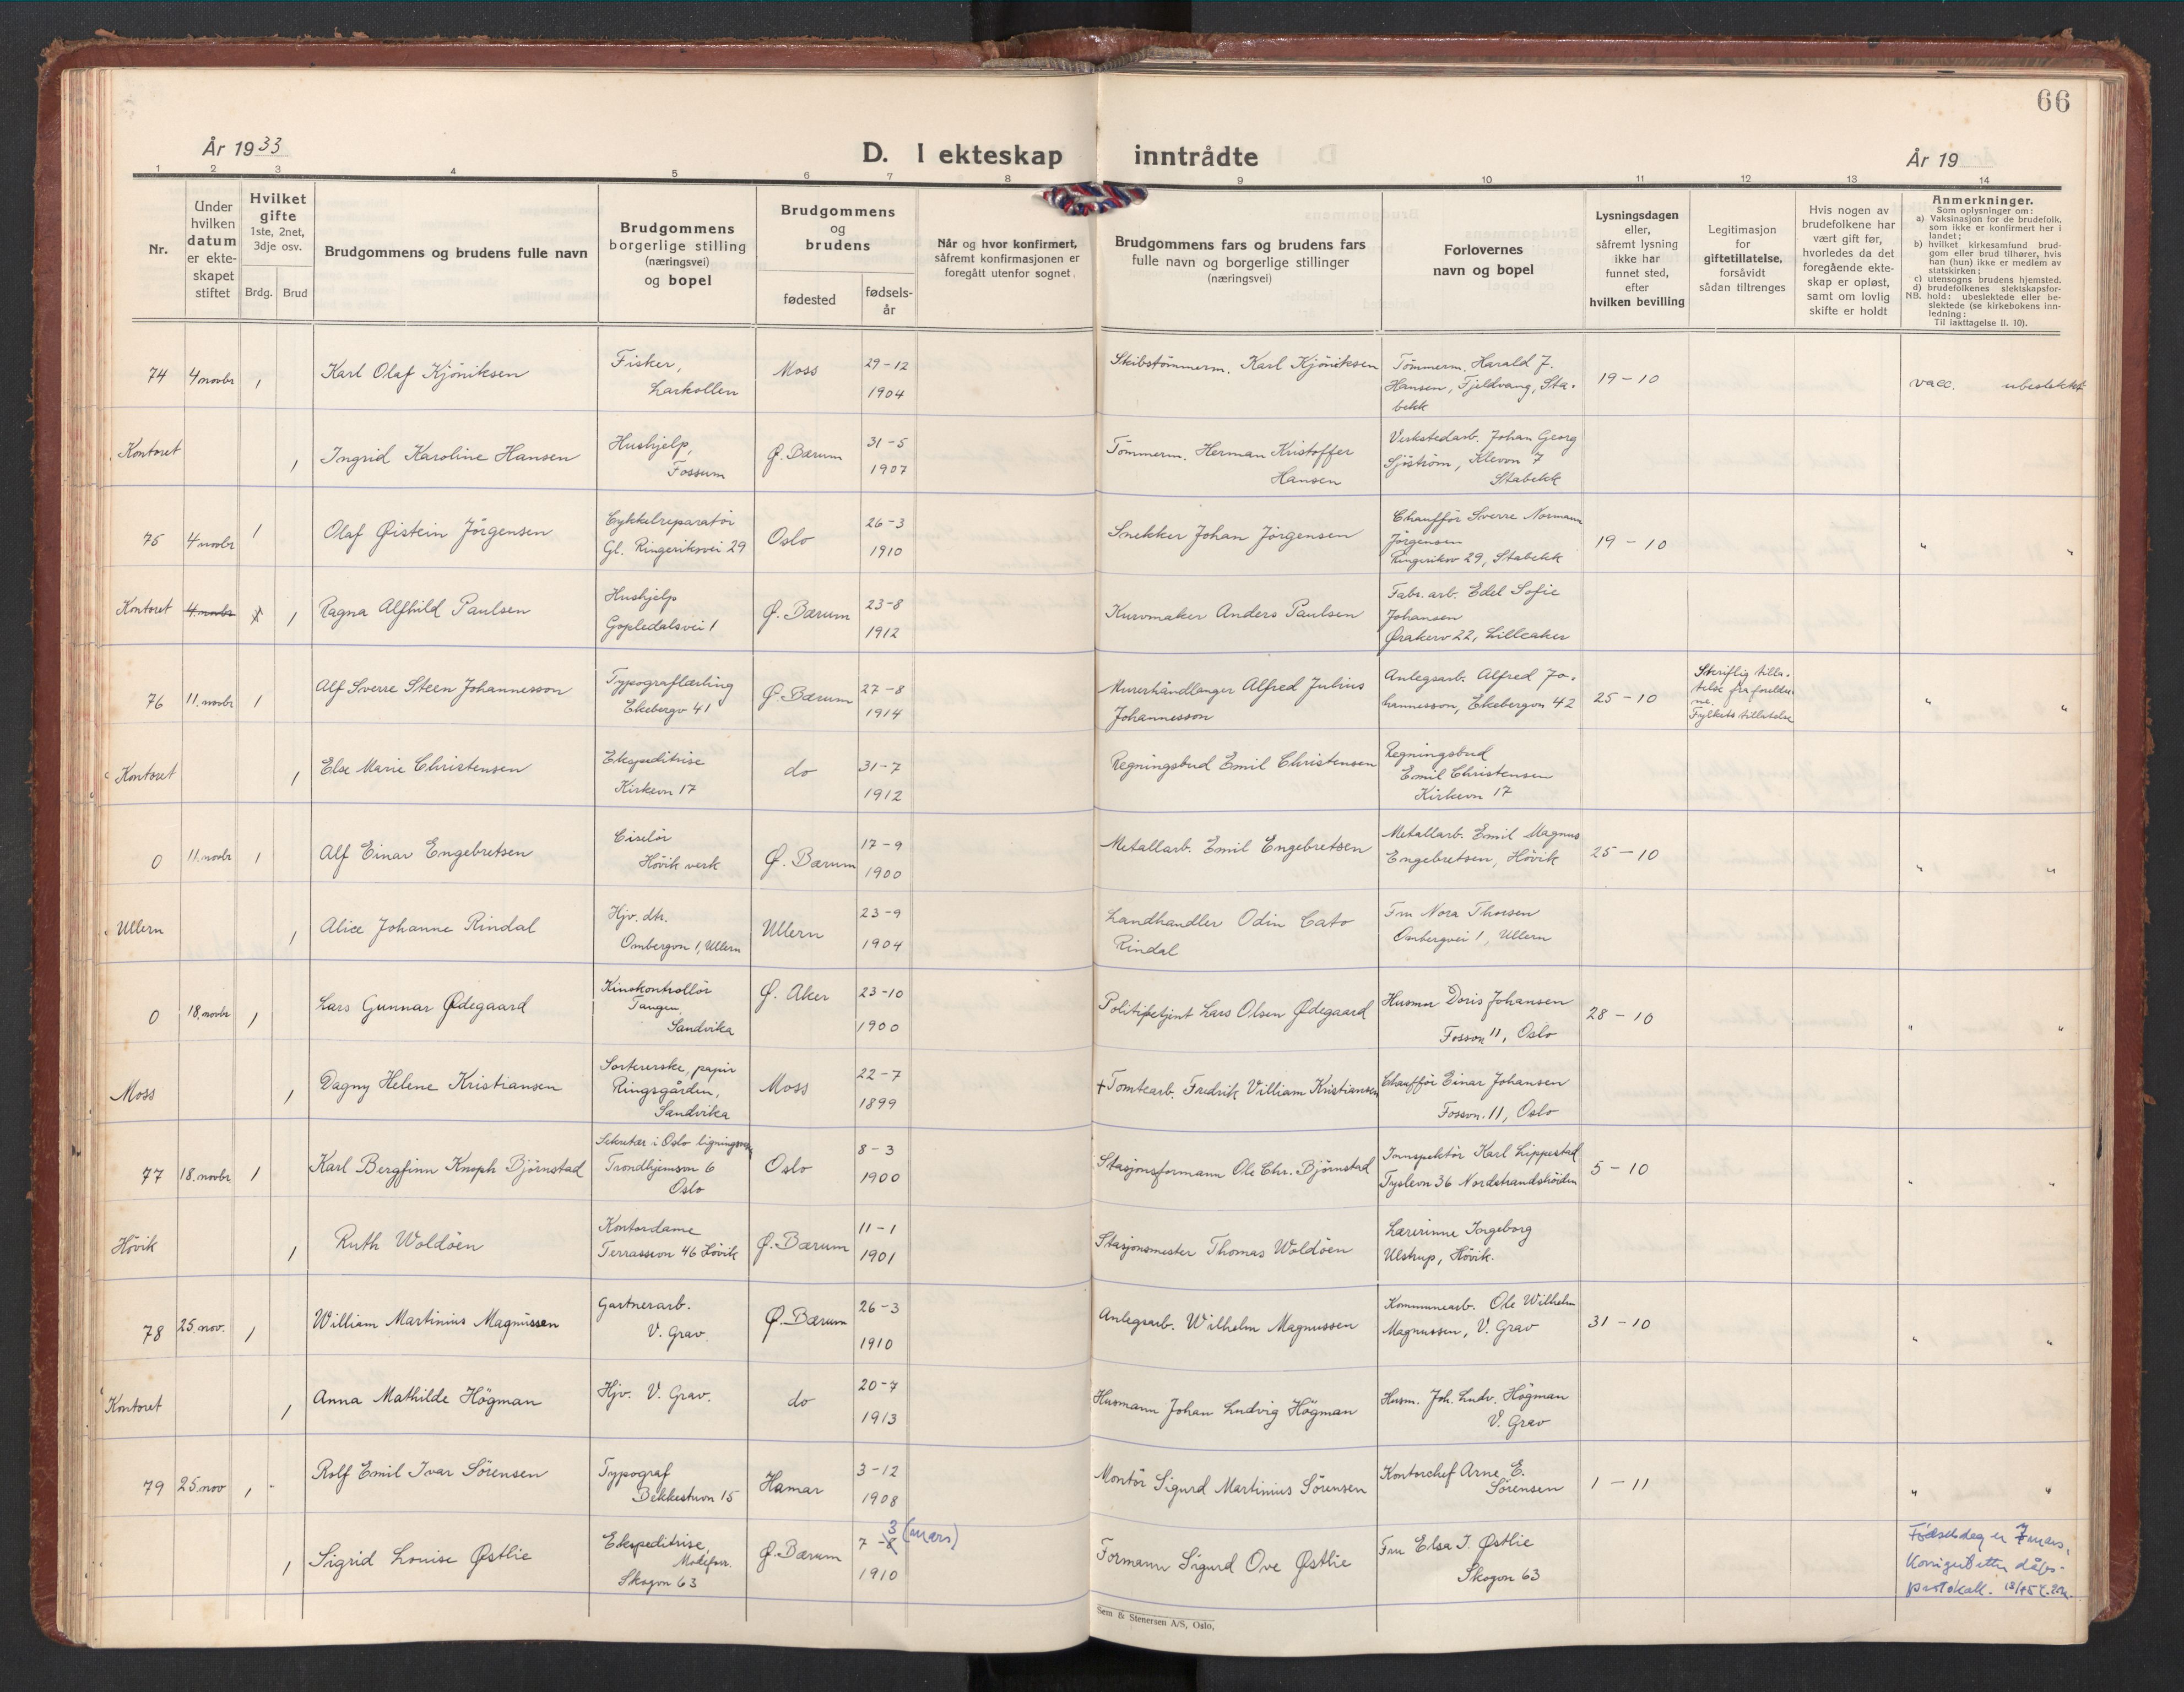 66
År 1933
D. I ekteskap inntrådte
År 19
1 2 3 4 5 6 7 8 9 10 11 12 13 14
Nr.
Under
hvilken
datum
er ekte-
skapet
stiftet
Hvilket
gifte
1ste, 2net,
3dje osv.
Brdg. Brud
Brudgommens og brudens fulle navn
Brudgommens
borgerlige stilling
(næringsvei)
og bopel
Brudgommens
og
brudens
fødested
fødsels-
år
Når og hvor konfirmert,
såfremt konfirmasjonen er
foregått utenfor sognet
Brudgommens fars og brudens fars
fulle navn og borgerlige stillinger
(næringsvei)
Forlovernes
navn og bopel
Lysningsdagen
eller,
såfremt lysning
ikke har
funnet sted,
efter
hvilken bevilling
Legitimasjon
for
giftetillatelse,
forsåvidt
sådan tiltrenges
Hvis nogen av
brudefolkene har
vært gift før,
hvorledes da det
foregående ekte-
skap er opløst,
samt om lovlig
skifte er holdt
Anmerkninger.
Som oplysninger om:
a) Vaksinasjon for de brudefolk,
som ikke er konfirmert her i
landet;
b) hvilket kirkesamfund brud-
gom eller brud tilhører, hvis
han (hun) ikke er medlem av
statskirken;
c) utensogns brudens hjemsted.
d) brudefolkenes slektskapsfor-
NB. hold: ubeslektede eller be-
slektede (se kirkebokens inn-
ledning:
Til iakttagelse II. 10).
74 4 novbr 1
Karl Olaf Kjöniksen
Fisker,
Larkollen
Moss
29-12
1904
Skibstömmerm. Karl Kjöniksen
Tömmerm. Harald J.
Hansen, Fjeldvang, Sta-
bekk
19-10
vacc. ubeslektet
Kontoret 1
Ingrid Karoline Hansen
Hushjelp,
Fossum
Ø. Bærum
31-5
1907
Tömmerm. Herman Kristoffer
Hansen
Verkstedarb. Johan Georg
Sjöström, Klevvn 7
Stabekk
75 4 novbr 1
Olaf Øistein Jörgensen
Cykkelreparatör
Gl. Ringeriksvei 29
Oslo
26-3
1910
Snekker Johan Jörgensen
Chaufför Sverre Normann
Jörgensen
Ringeriksv 29, Stabekk
19-10
" "
Kontoret 4 novbr 1 1
Ragna Alfhild Paulsen
Hushjelp
Gopledalsvei 1
Ø. Bærum
23-8
1912
Kurvmaker Anders Paulsen
Fabr. arb. Edel Sofie
Johansen
Ørakerv 22, Lilleaker
76 11. novbr 1
Alf Sverre Steen Johannesson
Typograflærling
Ekebergv 41
Ø. Bærum
27-8
1914
Murerhåndlanger Alfred Julius
Johannesson
Anlegsarb. Alfred Jo-
hannesson, Ekebergvn 42
25-10
Skriftlig tilla-
telse fra foreldre-
ne.
Fylkets tillatelse
" "
Kontoret 1
Else Marie Christensen
Ekspeditrise
Kirkevn 17
do
31-7
1912
Regningsbud Emil Christensen
Regningsbud
Emil Christensen
Kirkevn 17
0 11. novbr 1
Alf Einar Engebretsen
Ciselör
Hövik verk
Ø. Bærum
17-9
1900
Metallarb. Emil Engebretsen
Metallarb. Emil Magnus
Engebretsen, Hövik
25-10
" "
Ullern 1
Alice Johanne Rindal
Hjv. dtr.
Ombergvn 1, Ullern
Ullern
23-9
1904
Landhandler Odin Cato
Rindal
Fru Nora Thorsen
Ombergvei 1, Ullern
0 18. novbr 1
Lars Gunnar Ødegaard
Kinokontrollör
Tangen,
Sandvika
Ø. Aker
23-10
1900
Politibetjent Lars Olsen Ødegaard
Husmor Doris Johansen
Fossvn 11, Oslo
28-10
" "
Moss 1
Dagny Helene Kristiansen
Sortererske, papir
Ringsgården,
Sandvika
Moss
22-7
1899
+ Tomtearb. Fredrik Villiam Kristiansen
Chaufför Einar Johansen
Fossvn. 11, Oslo
77 18. novbr 1
Karl Bergfinn Knoph Björnstad
Sekretær i Oslo ligningsvesen
Trondhjemsvn 6
Oslo
Oslo
8-3
1900
Stasjonsformann Ole Chr. Björnstad
Innspektör Karl Lippestad
Tyslevn 36 Nordstrandshöiden
5-10
" "
Hövik 1
Ruth Woldöen
Kontordame
Terrassevn 46 Hövik
Ø. Bærum
11-1
1901
Stasjonsmester Thomas Woldöen
Lærerinne Ingeborg
Ulstrup, Hövik.
78 25. nov. 1
William Martinius Magnussen
Gartnerarb.
V. Grav.
Ø. Bærum
26-3
1910
Anlegsarb. Wilhelm Magnussen
Kommunearb. Ole Wilhelm
Magnussen, V. Grav
31-10
" "
Kontoret 1
Anna Mathilde Högman
Hjv. V. Grav.
do
20-7
1913
Husmann Johan Ludvig Högman
Husm. Joh. Ludv. Högman
V. Grav
79 25. nov 1
Rolf Emil Ivar Sörensen
Typograf
Bekkestuvn 15
Hamar
3-12
1908
Montör Sigurd Martinius Sörensen
Kontorchef Arne E.
Sörensen
1-11
" "
1
Sigrid Louise Østlie
Ekspeditrise,
Modeforr.
Skogvn 63
Ø. Bærum
3 (mars)
7-8
1910
Formann Sigurd Ove Østlie
Fru Elsa I. Østlie
Skogvn 63
Födselsdag er 7 mars,
Korrigert etter dåps-
protokoll.
Sem & Stenersen A/S, Oslo.